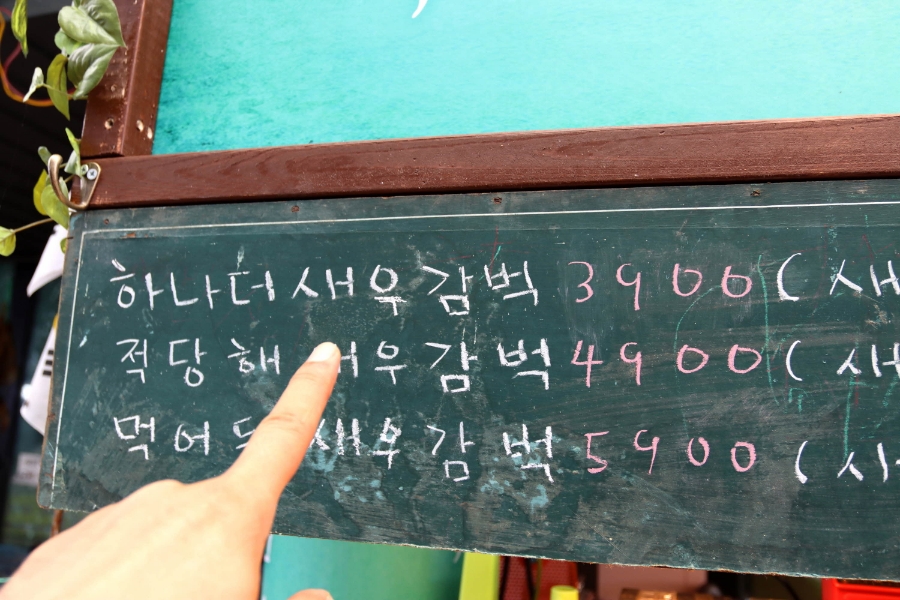 하나더 새우 감벅 3900 ( 새
적당해 우 감벅 4900 (
먹어 새우 감벅 5900 (